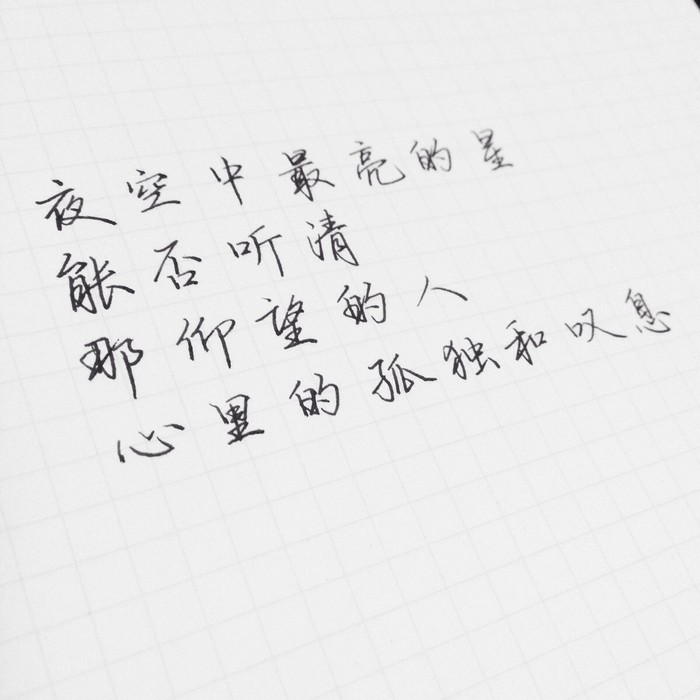 夜空中最亮的星
能否听清
那仰望的人
心里的孤独和叹息